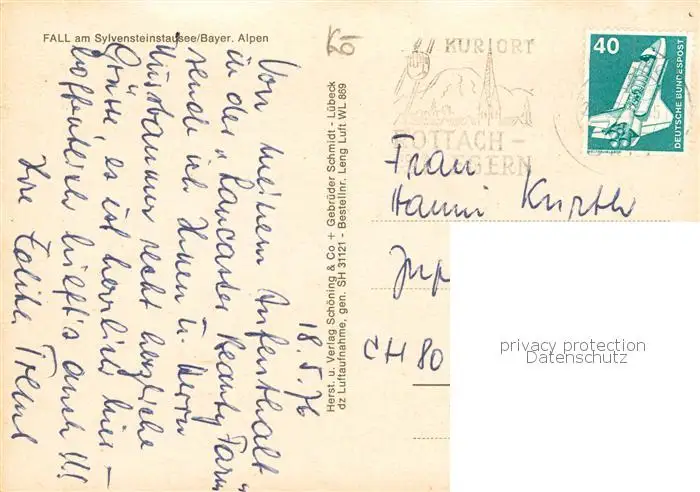 FALL am Sylvensteinstausee/Bayer. Alpen
18.5.76
Von meinem Aufenthalt
in der „Lancaster Beauty Farm“
sende ich Ihnen u. Herrn
recht herzliche
Grüsse, es ist herrlich hier. –
hoffentlich hieft's auch!!!
Ihre
Herst. u. Verlag Schöning & Co + Gebrüder Schmidt - Lübeck
dz Luftaufnahme, gen. SH 31121 - Bestellnr. Leng Luft WL 889
KURORT
ROTTACH-
EGERN
40
DEUTSCHE BUNDESPOST
Frau
Hanni Kurth
CH 80
privacy protection
Datenschutz